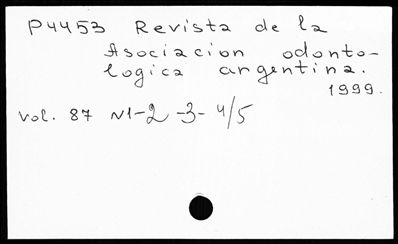 P4453 Revista de la
Asociacion odonto-
logica argentina.
1999.
vol. 87 N1-2-3-4/5